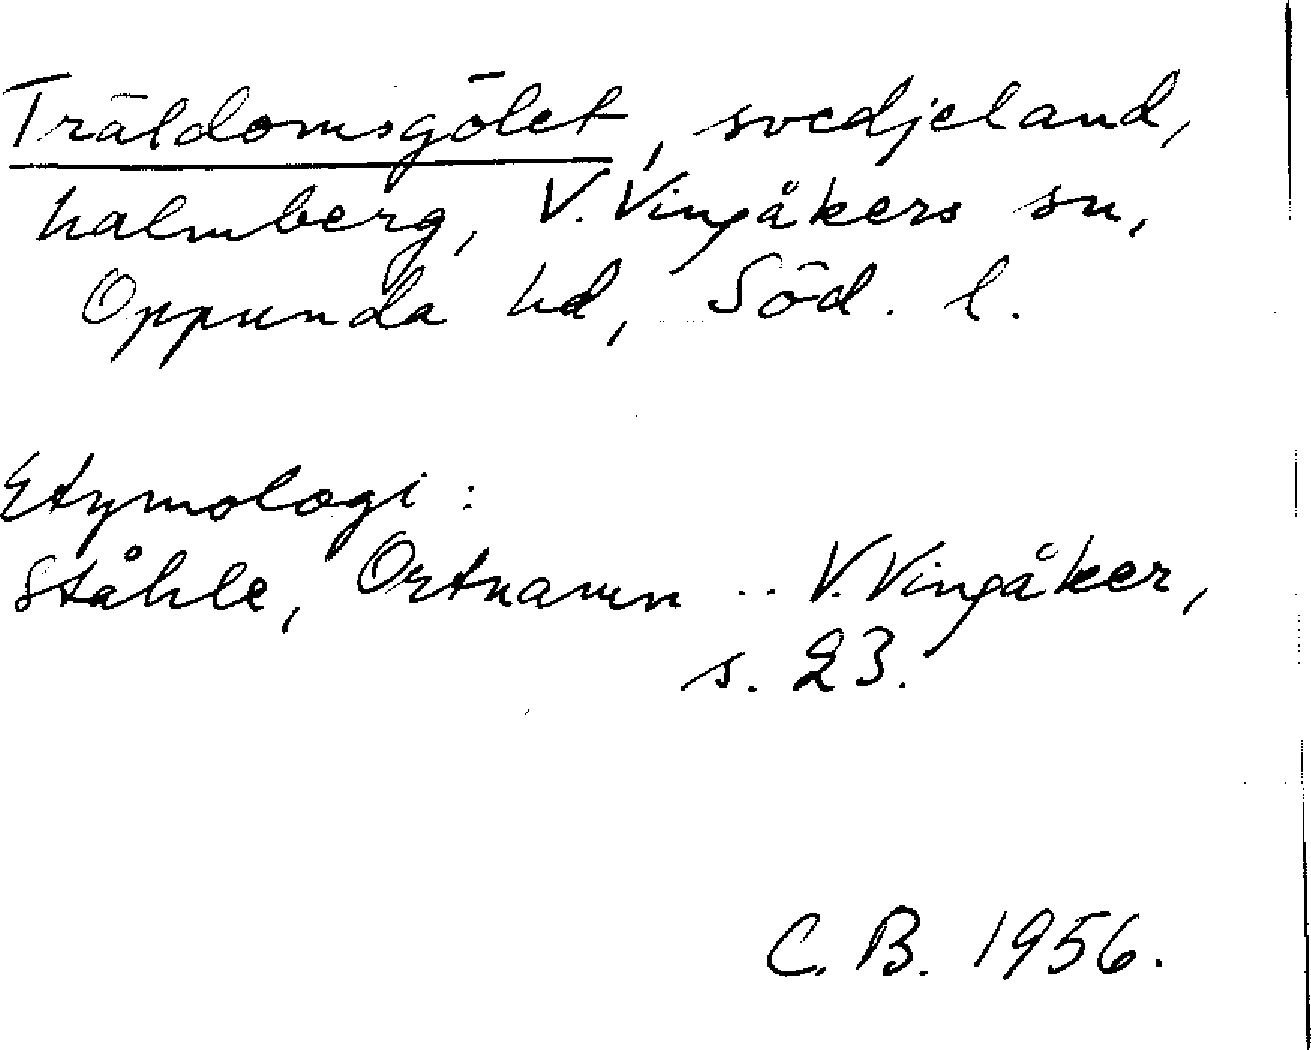 Träldomsgölet, svedjeland,
halmberg, V. Vingåkers sn,
Oppunda hd, Söd. l.
Etymologi:
Ståhle, Ortnamn .. V. Vingåker,
s. 23.
C. B. 1956.